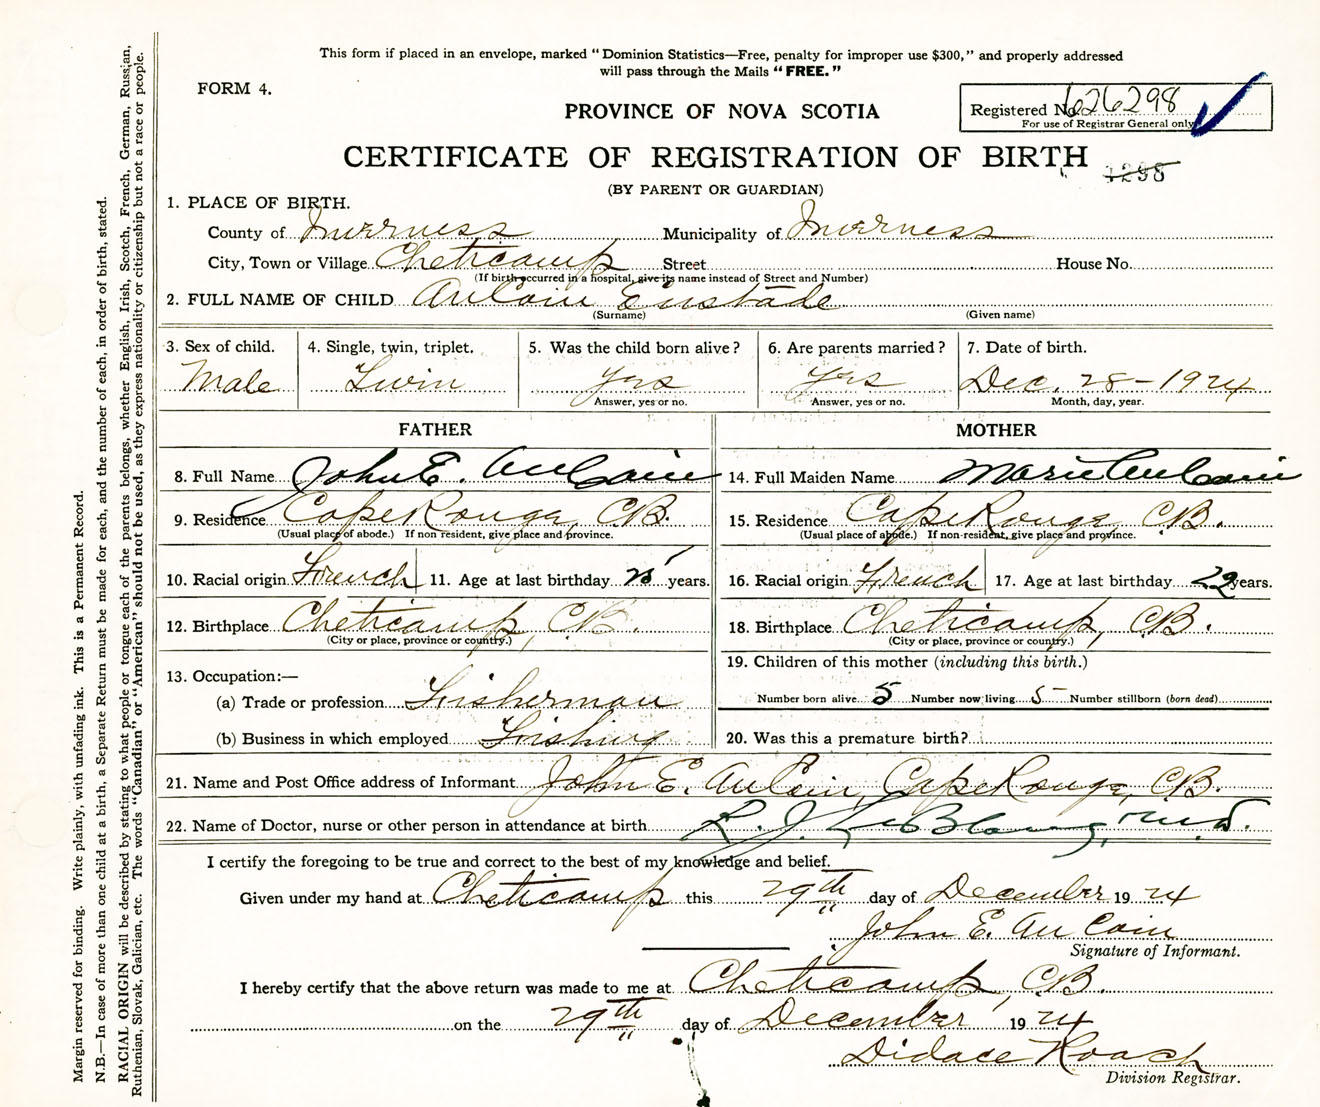 This form if placed in an envelope, marked "Dominion Statistics—Free, penalty for improper use $300," and properly addressed
will pass through the Mails "FREE."
FORM 4.
Registered No. 626298
For use of Registrar General only
PROVINCE OF NOVA SCOTIA
CERTIFICATE OF REGISTRATION OF BIRTH
1298
(BY PARENT OR GUARDIAN)
1. PLACE OF BIRTH.
County of Inverness Municipality of Inverness
City, Town or Village Cheticamp Street House No.
(If birth occurred in a hospital, give its name instead of Street and Number)
2. FULL NAME OF CHILD AuCoin Eustade
(Surname) (Given name)
3. Sex of child. 4. Single, twin, triplet. 5. Was the child born alive? 6. Are parents married? 7. Date of birth.
Male Twin Yes Yes Dec. 28-1924
Answer, yes or no. Answer, yes or no. Month, day, year.
FATHER MOTHER
8. Full Name John E. AuCoin 14. Full Maiden Name Marie AuCoin
9. Residence Cape Rouge, CB. 15. Residence Cape Rouge CB.
(Usual place of abode.) If non resident, give place and province. (Usual place of abode.) If non-resident, give place and province.
10. Racial origin French 11. Age at last birthday years. 16. Racial origin French 17. Age at last birthday 29 years.
12. Birthplace Cheticamp, CB. 18. Birthplace Cheticamp, CB.
(City or place, province or country.) (City or place, province or country.)
13. Occupation:— 19. Children of this mother (including this birth.)
(a) Trade or profession Fisherman Number born alive 5 Number now living 5 Number stillborn (born dead)
(b) Business in which employed Fishing 20. Was this a premature birth?
21. Name and Post Office address of Informant John E. AuCoin, Cape Rouge, CB.
22. Name of Doctor, nurse or other person in attendance at birth L. J. LeBlanc, M.D.
I certify the foregoing to be true and correct to the best of my knowledge and belief.
Given under my hand at Cheticamp this 29th day of December 1924
John E. AuCoin
Signature of Informant.
I hereby certify that the above return was made to me at Cheticamp, CB.
on the 29th day of December 1924
Didace Roach
Division Registrar.
Margin reserved for binding. Write plainly, with unfading ink. This is a Permanent Record.
N.B.—In case of more than one child at a birth, a Separate Return must be made for each, and the number of each, in order of birth, stated.
RACIAL ORIGIN will be described by stating to what people or tongue each of the parents belongs, whether English, Irish, Scotch, French, German, Russian,
Ruthenian, Slovak, Galician, etc. The words "Canadian" or "American" should not be used, as they express nationality or citizenship but not a race or people.